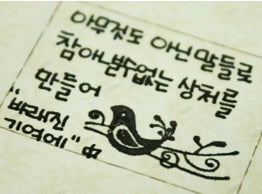 아무것도 아닌 말들로
참아낼수없는 상처를
만들어
"바래진
기억에" 中